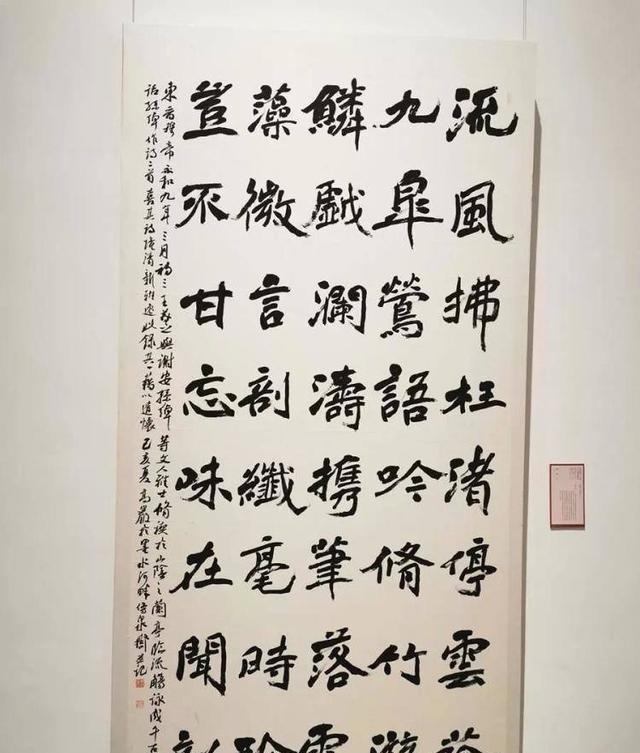 流風拂枉渚停雲蔭
九皐鶯語吟脩竹游
鱗戲瀾濤携筆落雲
藻微言剖纖毫時珎
豈不甘忘味在聞
東晉穆帝永和九年三月初三王羲之與謝安孫綽等文人雅士脩禊於山陰之蘭亭臨流觴詠成千古
話孫綽作詩二首喜其詩境清新雅逸此錄其一藉以遣懷己亥夏高嚴於墨水河畔